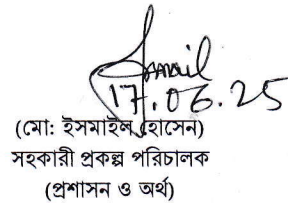 Ismail
17.06.25
(মো: ইসমাইল হোসেন)
সহকারী প্রকল্প পরিচালক
(প্রশাসন ও অর্থ)